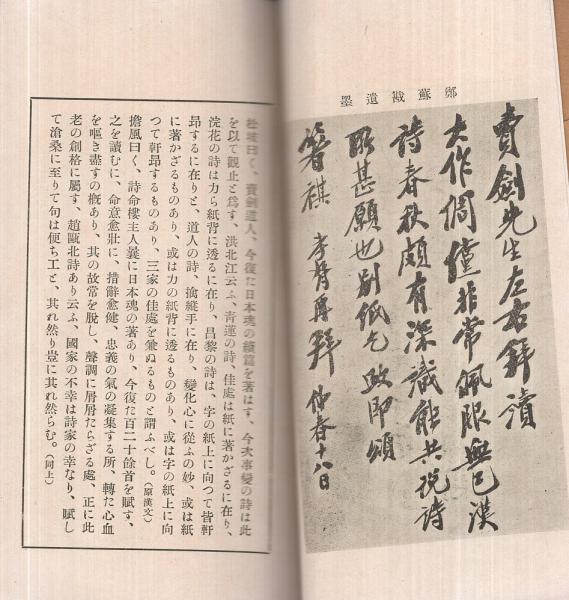 鄭蘇戡遺墨
賣劍先生左右辭瀆
大作倜儻非常佩服無已漢
詩春秋頗有深識能共說詩
耶甚願也別紙乞 政即頌
箸祺 孝胥再拜 仲春十八日
曰く、賣劍道人、今復た日本魂の續篇を著はす、今次事變の詩は此
を以て觀止と爲す、洪北江云ふ、靑蓮の詩、佳處は紙に著かざるに在り、
浣花の詩は力ら紙背に透るに在り、昌黎の詩は、字の紙上に向つて皆軒
昂するに在りと、道人の詩、擒縱手に在り、變化心に從ふの妙、或は紙
に著かざるものあり、或は力の紙背に透るものあり、或は字の紙上に向
つて軒昂するものあり、三家の佳處を兼ぬるものと謂ふべし。(原漢文)
擔風曰く、詩命樓主人曩に日本魂の著あり、今復た百二十餘首を賦す、
之を讀むに、命意愈壯に、措辭愈健、忠義の氣の凝集する所、轉た心血
を嘔き盡すの槪あり、其の故常を脫し、聲調に屑屑たらざる處、正に此
老の創格に屬す、趙甌北詩あり云ふ、國家の不幸は詩家の幸なり、賦し
て滄桑に至りて句は便ち工と、其れ然り豈に其れ然らむ。(同上)